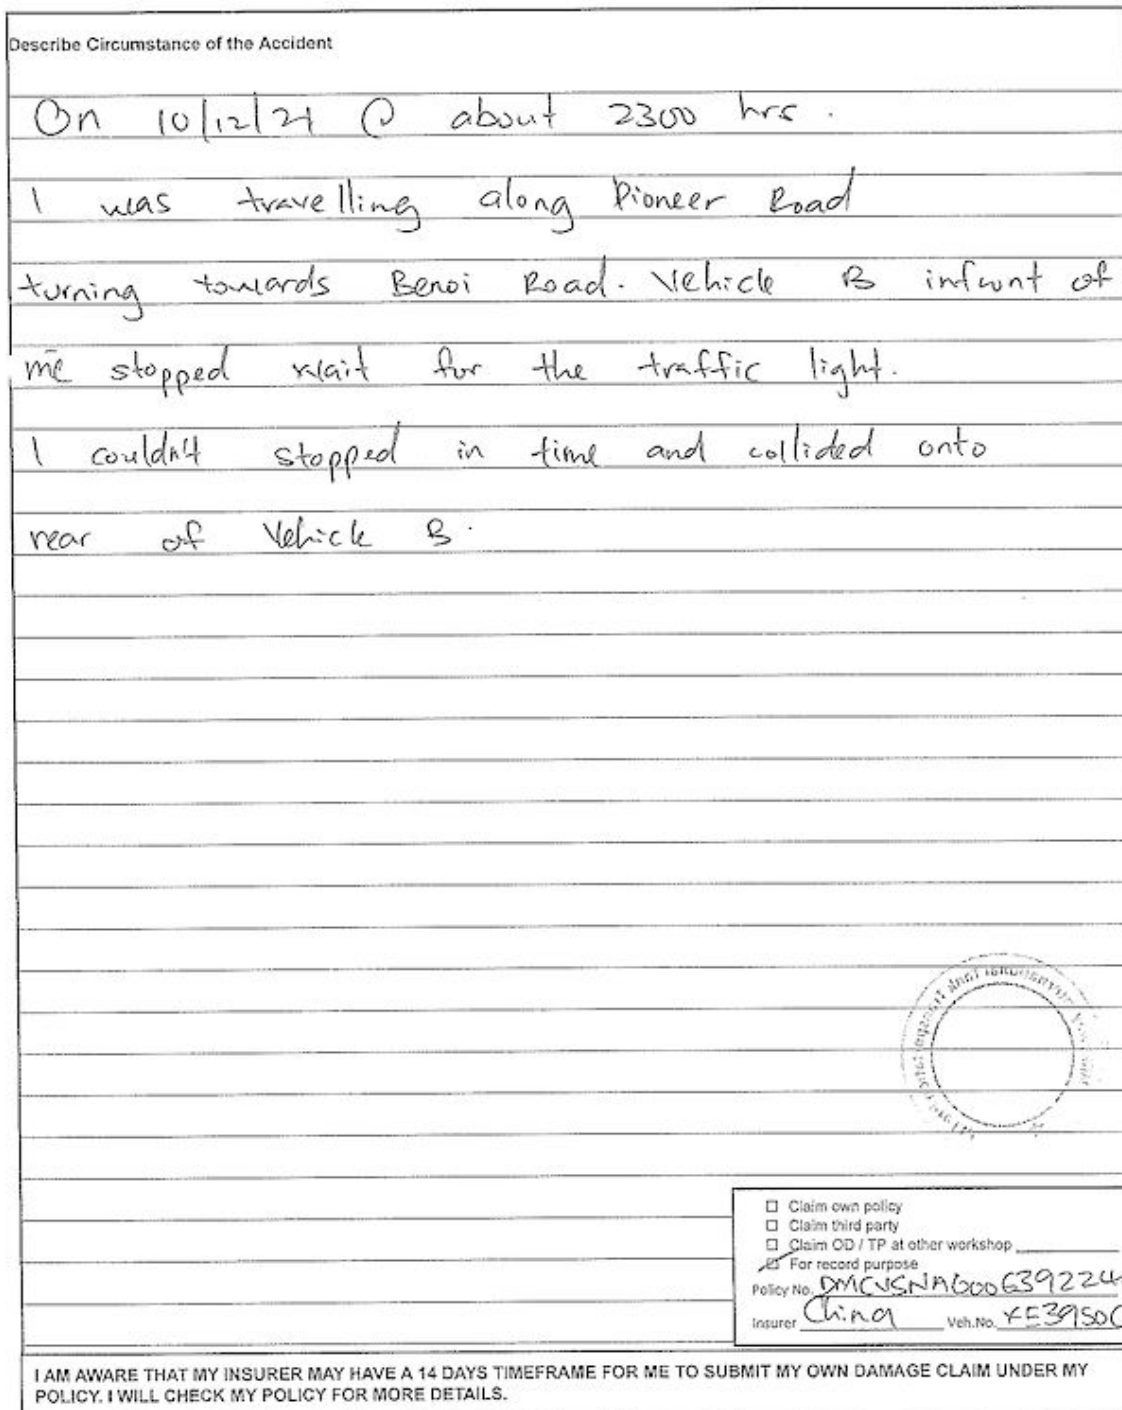 Describe Circumstance of the Accident
On 10/12/21 @ about 2300 hrs.
I was travelling along Pioneer Road
turning towards Benoi Road. Vehicle B infront of
me stopped wait for the traffic light.
I couldn't stopped in time and collided onto
rear of Vehicle B.
☐ Claim own policy
☐ Claim third party
☐ Claim OD / TP at other workshop
☑ For record purpose
Policy No.
Insurer China Veh.No.
I AM AWARE THAT MY INSURER MAY HAVE A 14 DAYS TIMEFRAME FOR ME TO SUBMIT MY OWN DAMAGE CLAIM UNDER MY
POLICY. I WILL CHECK MY POLICY FOR MORE DETAILS.